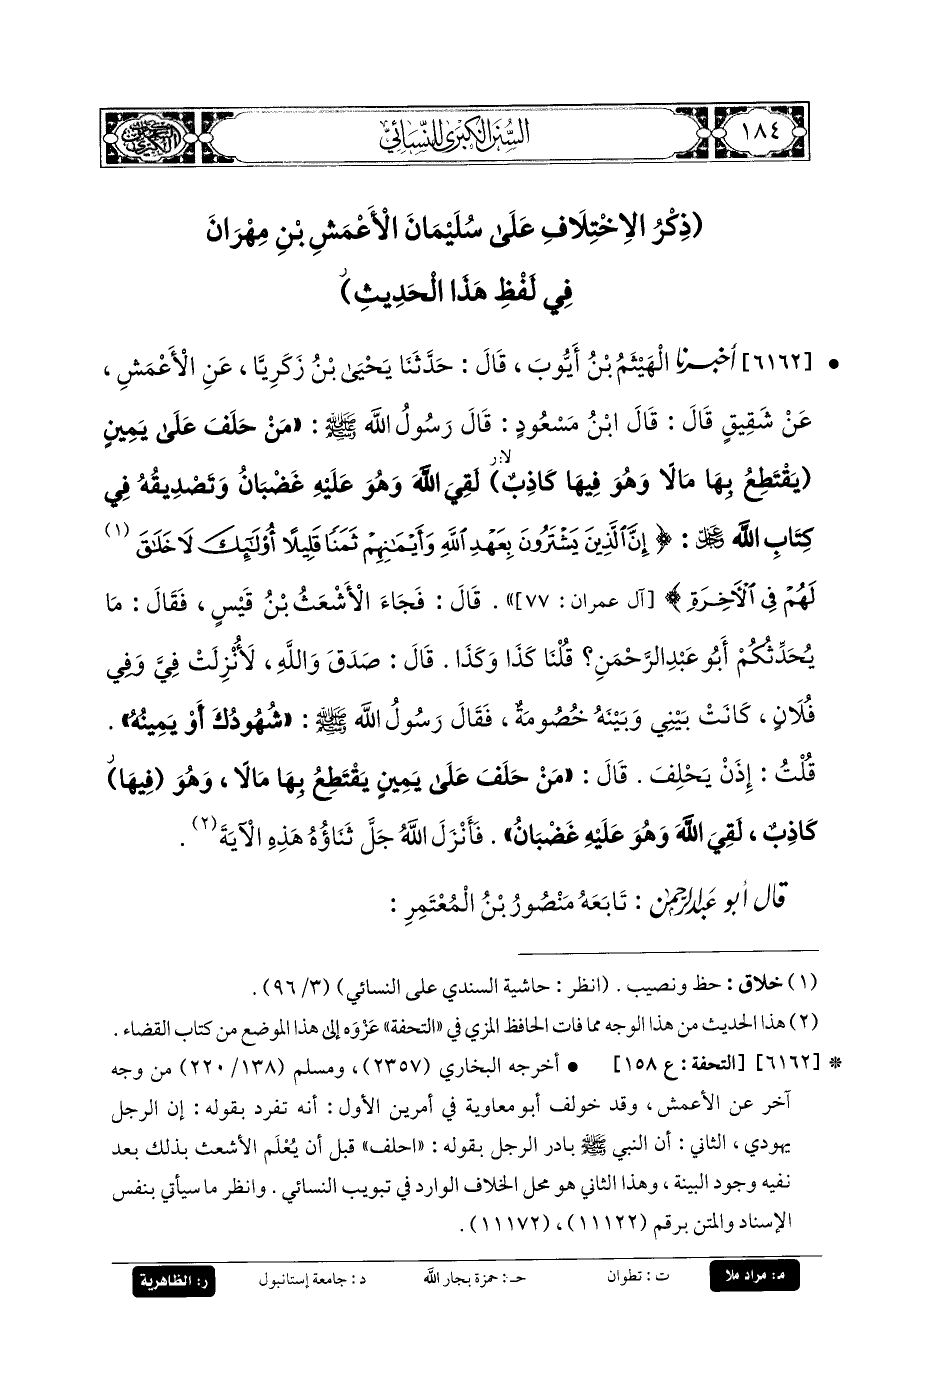 ١٨٤
السُّنَنُ الكُبرى للنَّسَائِي
(ذِكْرُ الِاخْتِلَافِ عَلَىٰ سُلَيْمَانَ الْأَعْمَشِ بْنِ مِهْرَانَ
فِي لَفْظِ هَذَا الْحَدِيثِ)ر
• [٦١٦٢] أخبرنا الْهَيْثَمُ بْنُ أَيُّوبَ ، قَالَ : حَدَّثَنَا يَحْيَىٰ بْنُ زَكَرِيَّا ، عَنِ الْأَعْمَشِ ،
عَنْ شَقِيقٍ قَالَ : قَالَ ابْنُ مَسْعُودٍ : قَالَ رَسُولُ اللَّه ﷺ : «مَنْ حَلَفَ عَلَىٰ يَمِينٍ
(يَقْتَطِعُ بِهَا مَالًا وَهُوَ فِيهَا كَاذِبٌ) لا:ر لَقِيَ اللَّهَ وَهُوَ عَلَيْهِ غَضْبَانُ وَتَصْدِيقُهُ فِي
كِتَابِ اللَّه ﷻ : ﴿ إِنَّ ٱلَّذِينَ يَشْتَرُونَ بِعَهْدِ ٱللَّهِ وَأَيْمَـٰنِهِمْ ثَمَنًا قَلِيلًا أُوْلَـٰٓئِكَ لَا خَلَـٰقَ (١)
لَهُمْ فِى ٱلْـَٔاخِرَةِ ﴾ [آل عمران : ٧٧]» . قَالَ : فَجَاءَ الْأَشْعَثُ بْنُ قَيْسٍ ، فَقَالَ : مَا
يُحَدِّثُكُمْ أَبُو عَبْدِالرَّحْمَنِ؟ قُلْنَا كَذَا وَكَذَا . قَالَ : صَدَقَ وَاللَّهِ، لَأُنْزِلَتْ فِيَّ وَفِي
فُلَانٍ ، كَانَتْ بَيْنِي وَبَيْنَهُ خُصُومَةٌ ، فَقَالَ رَسُولُ اللَّه ﷺ : «شُهُودُكَ أَوْ يَمِينُهُ» .
قُلْتُ : إِذَنْ يَحْلِفَ . قَالَ : «مَنْ حَلَفَ عَلَىٰ يَمِينٍ يَقْتَطِعُ بِهَا مَالًا ، وَهُوَ (فِيهَا)ر
كَاذِبٌ ، لَقِيَ اللَّهَ وَهُوَ عَلَيْهِ غَضْبَانُ» . فَأَنْزَلَ اللَّهُ جَلَّ ثَنَاؤُهُ هَذِهِ الْآيَةَ (٢) .
قال أبو عبدالرحمن : تَابَعَهُ مَنْصُورُ بْنُ الْمُعْتَمِرِ :
(١) خلاق : حظ ونصيب . (انظر : حاشية السندي على النسائي) (٣/ ٩٦) .
(٢) هذا الحديث من هذا الوجه مما فات الحافظ المزي في «التحفة» عَزْوَه إلى هذا الموضع من كتاب القضاء .
* [٦١٦٢] [التحفة : ع ١٥٨] • أخرجه البخاري (٢٣٥٧) ، ومسلم (١٣٨/ ٢٢٠) من وجه
آخر عن الأعمش ، وقد خولف أبو معاوية في أمرين الأول : أنه تفرد بقوله : إن الرجل
يهودي ، الثاني : أن النبي ﷺ بادر الرجل بقوله : «احلف» قبل أن يُعْلَم الأشعث بذلك بعد
نفيه وجود البينة ، وهذا الثاني هو محل الخلاف الوارد في تبويب النسائي . وانظر ما سيأتي بنفس
الإسناد والمتن برقم (١١١٢٢) ، (١١١٧٢) .
م: مراد ملا ت : تطوان حـ : حمزة بجار اللَّه د : جامعة إستانبول ر: الظاهرية